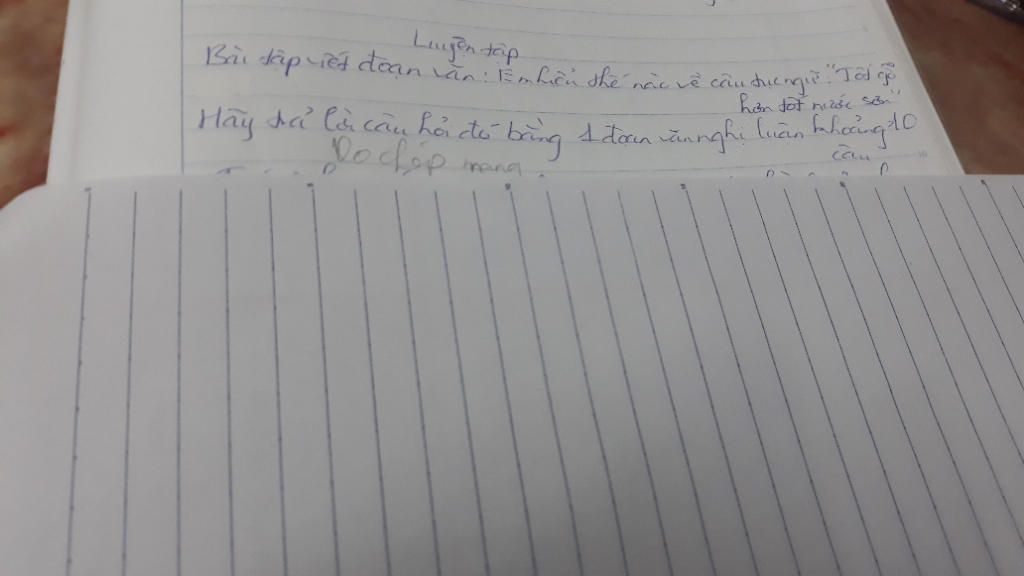 Luyện tập
Bài tập viết đoạn văn: Em hiểu thế nào về câu tục ngữ: "Tốt gỗ
hơn tốt nước sơn"
Hãy trả lời câu hỏi đó bằng 1 đoạn văn nghị luận khoảng 10
câu
Ko chép mạng